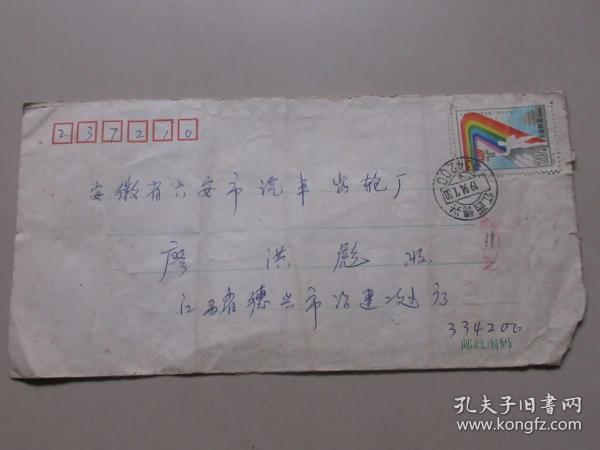 237210
安徽省六安市汽车齿轮厂
廖洪彪 收
江西省德兴市冶建次女
334200
邮政编码
334200
江西德兴
孔夫子旧书网
www.kongfz.com